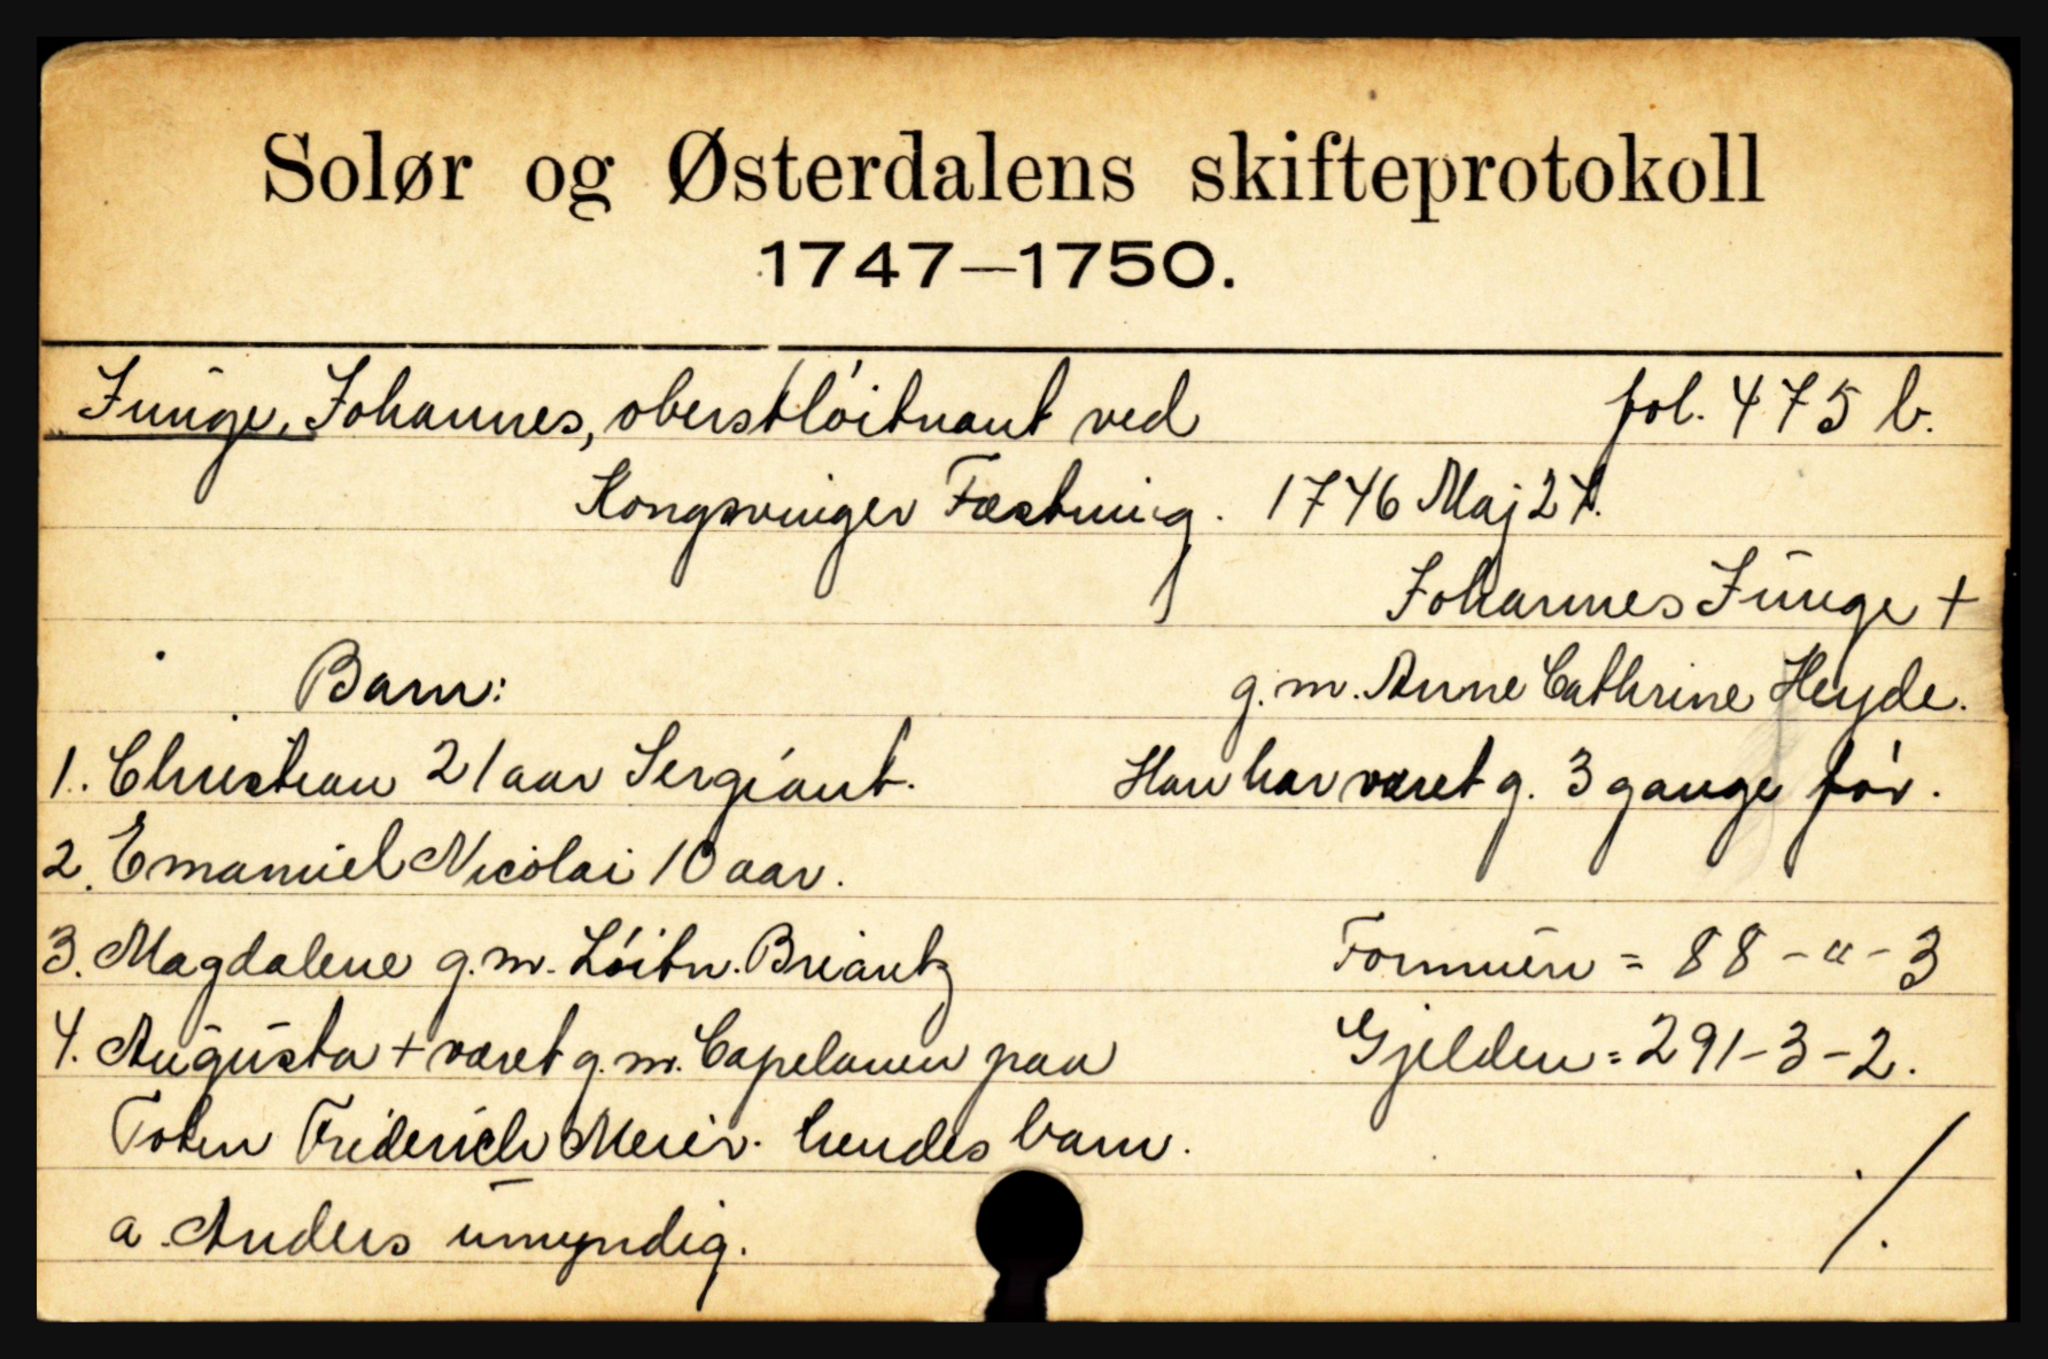 Solør og Østerdalens skifteprotokoll
1747—1750.
Junge, Johannes, oberstlöitnant ved fol. 475 b.
Kongsvinger Fæstning. 1746 Maj 27.
Johannes Junge +
Barn: g. m. Anne Cathrine Heyde.
1. Christian 21 aar Sergiant. Han har været g. 3 gange før.
2. Emanuel Nicolai 10 aar.
3. Magdalene g. m. Löitn. Briantz Formuen = 88 - " - 3
4. Augusta + været g. m. Capelanen paa Gjelden = 291 - 3 - 2.
Toten Friderich Meier. hendes barn.
a. Anders umyndig. ./.